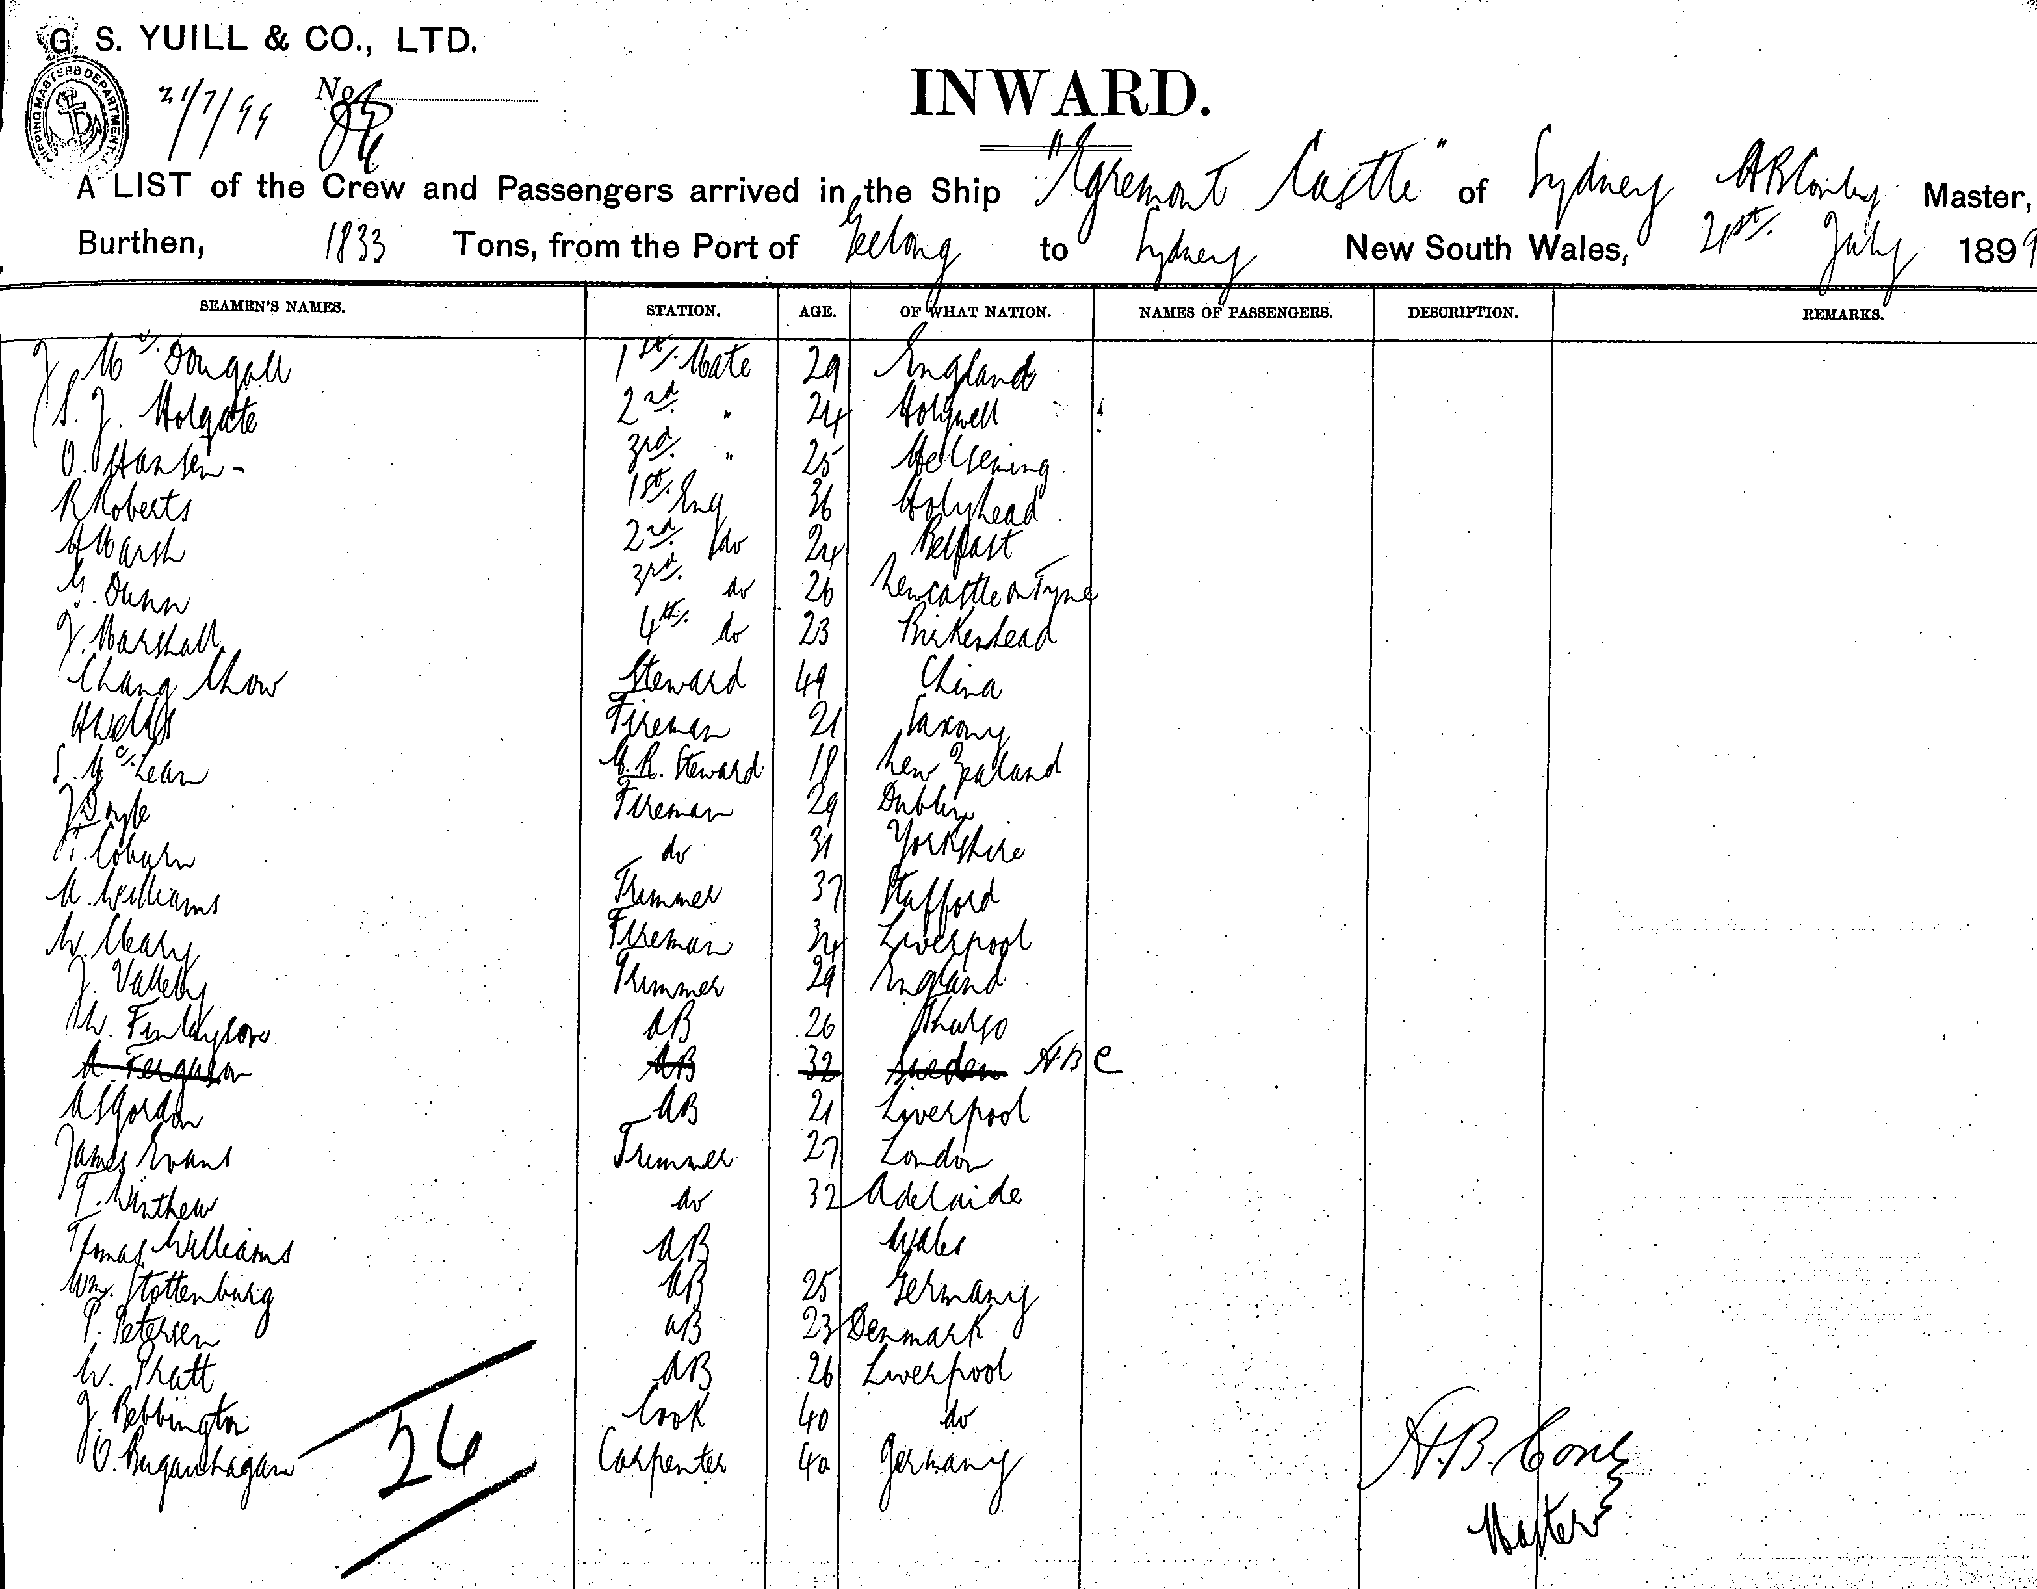 G. S. YUILL & CO., LTD.
SHIPPING MASTERS DEPARTMENT
21/7/99 No.
INWARD.
A LIST of the Crew and Passengers arrived in the Ship "Egremont Castle" of Sydney Master,
Burthen, 1833 Tons, from the Port of Geelong to Sydney New South Wales, 21st. July 1899
SEAMEN'S NAMES. STATION. AGE. OF WHAT NATION. NAMES OF PASSENGERS. DESCRIPTION. REMARKS.
J McDougall 1st. Mate 29 England
S. J. Holgate 2nd. " 24 Holywell
O. Hansen - 3rd. " 25 Helsening
R Roberts 1st. Eng 36 Holyhead
A Marsh 2nd. do 24 Belfast
G. Dunn 3rd. do 26 Newcastle on Tyne
J. Marshall 4th. do 23 Birkenhead
Chang Chow Steward 49 China
Fireman 21 Saxony
S. McLean M. R. Steward 18 New Zealand
J. Doyle Fireman 29 Dublin
T. Coburn do 31 Yorkshire
A. Williams Trimmer 37 Stafford
W. Cleary Fireman 34 Liverpool
J. Valleby Trimmer 29 England
W. Finlayson AB 26 Thurso
A Ferguson AB 32 Sweden ABC
A S Gordon AB 21 Liverpool
James Evans Trimmer 27 London
T. Winthew do 32 Adelaide
Thomas Williams AB Wales
Wm. Stottenburg AB 25 Germany
P. Petersen AB 23 Denmark
W. Pratt AB 26 Liverpool
J. Bebbington Cook 40 do
O. Buganhagan Carpenter 40 Germany
26
A.B. Conby
Master